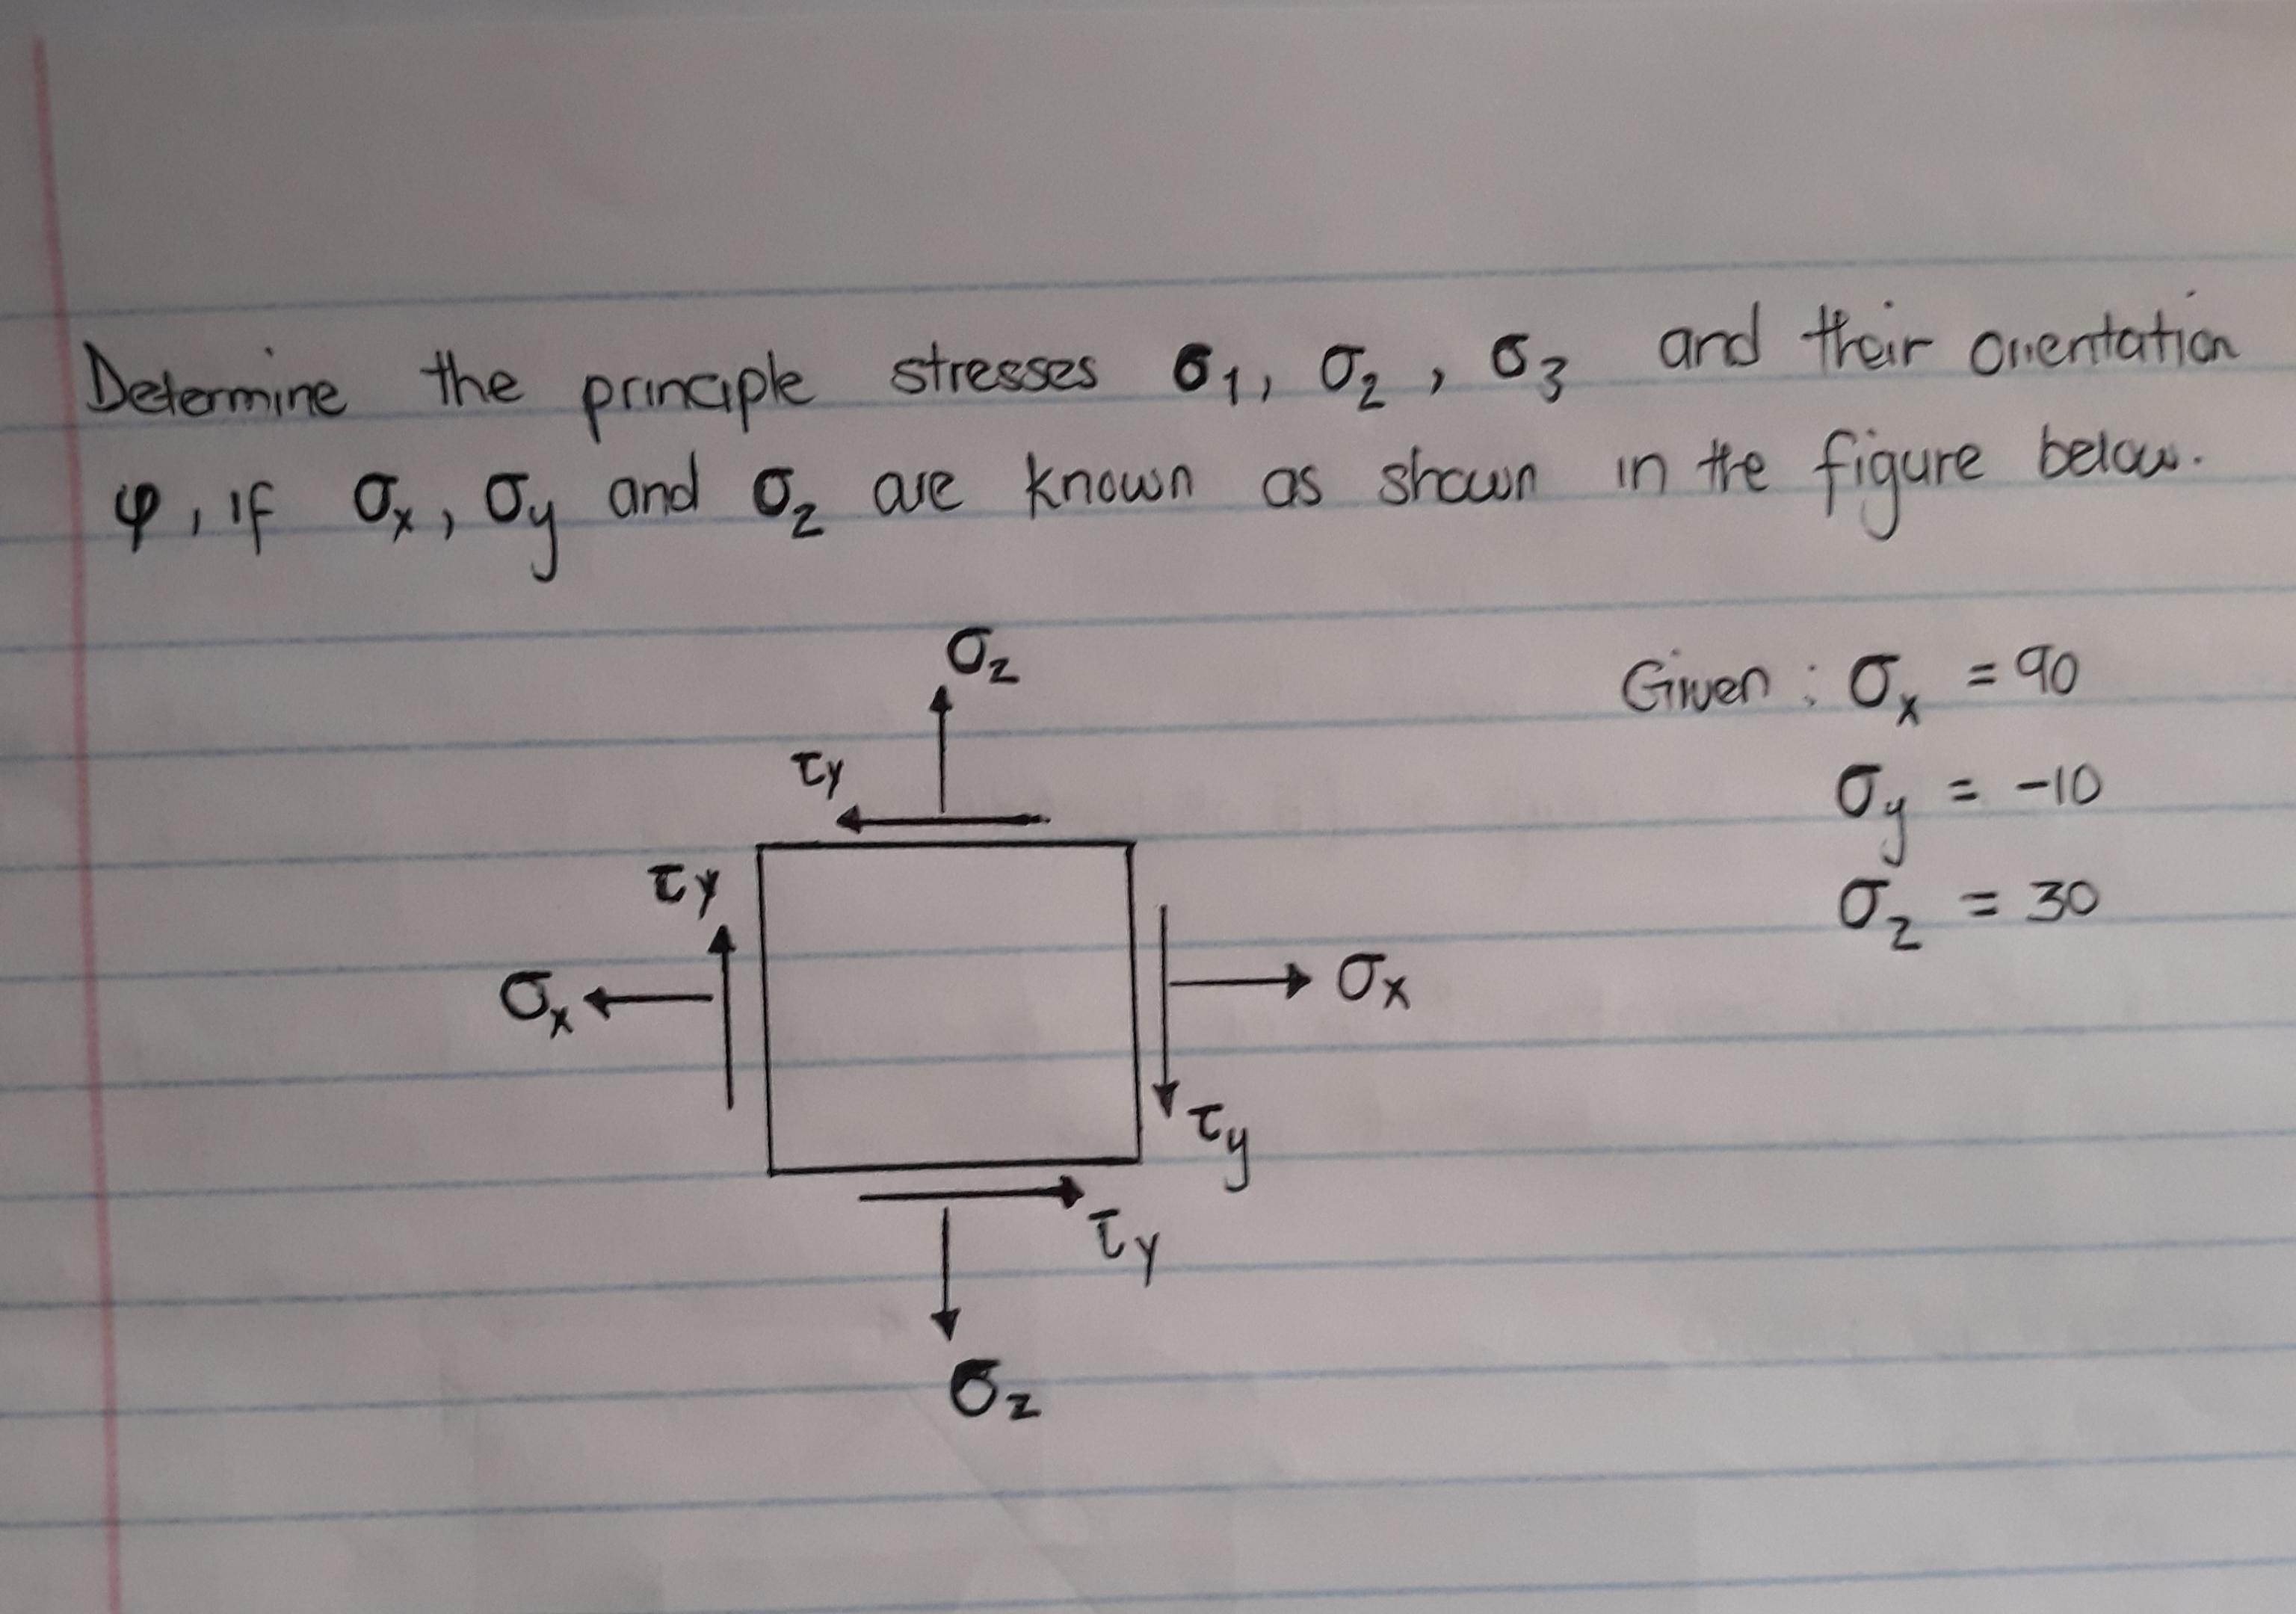 Determine the principle stresses σ1, σ2, σ3 and their orientation
φ, if σx, σy and σz are known as shown in the figure below.
σz
Given : σx = 90
τy
σy = -10
τy
σz = 30
σx
σx
τy
τy
σz